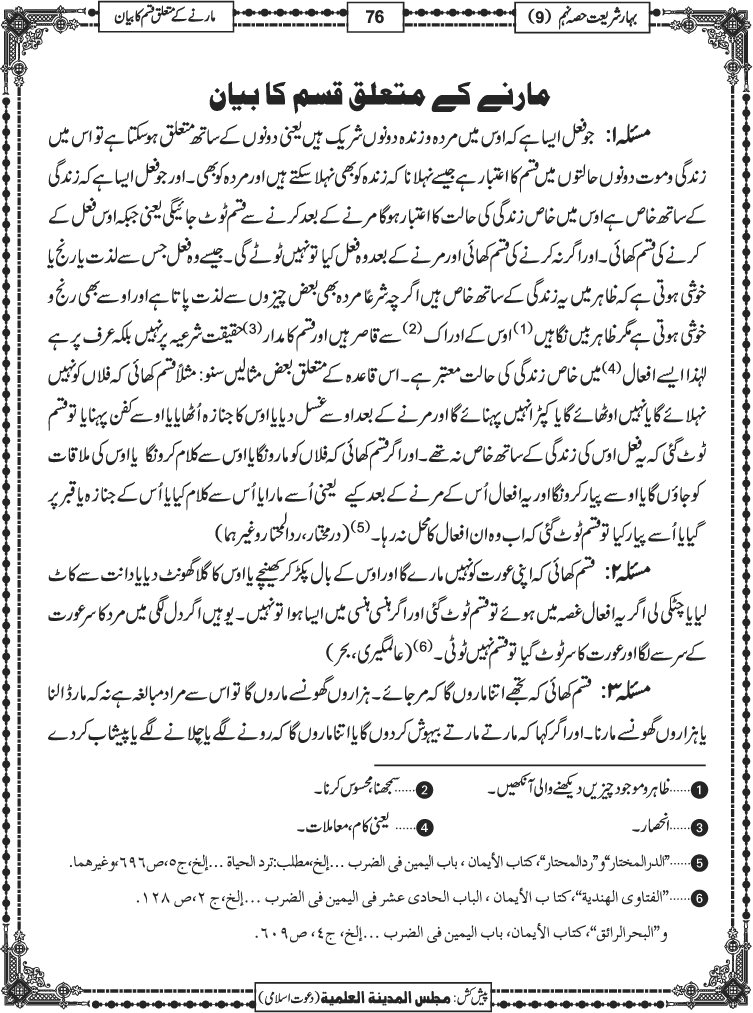 بہارِ شریعت حصہ نہم (9)
76
مارنے کے متعلق قسم کا بیان
مارنے کے متعلق قسم کا بیان
مسئلہ ۱: جو فعل ایسا ہے کہ اوس میں مردہ و زندہ دونوں شریک ہیں یعنی دونوں کے ساتھ متعلق ہوسکتا ہے تو اس میں
زندگی و موت دونوں حالتوں میں قسم کا اعتبار ہے جیسے نہلانا کہ زندہ کو بھی نہلا سکتے ہیں اور مردہ کو بھی۔ اور جو فعل ایسا ہے کہ زندگی
کے ساتھ خاص ہے اوس میں خاص زندگی کی حالت کا اعتبار ہوگا مرنے کے بعد کرنے سے قسم ٹوٹ جائیگی یعنی جبکہ اوس فعل کے
کرنے کی قسم کھائی۔ اور اگر نہ کرنے کی قسم کھائی اور مرنے کے بعد وہ فعل کیا تو نہیں ٹوٹے گی۔ جیسے وہ فعل جس سے لذت یا رنج یا
خوشی ہوتی ہے کہ ظاہر میں یہ زندگی کے ساتھ خاص ہیں اگرچہ شرعًا مردہ بھی بعض چیزوں سے لذت پاتا ہے اور اوسے بھی رنج و
خوشی ہوتی ہے مگر ظاہر بیں نگاہیں (1) اوس کے ادراک (2) سے قاصر ہیں اور قسم کا مدار (3) حقیقت شرعیہ پر نہیں بلکہ عرف پر ہے
لہٰذا ایسے افعال (4) میں خاص زندگی کی حالت معتبر ہے۔ اس قاعدہ کے متعلق بعض مثالیں سنو: مثلاً قسم کھائی کہ فلاں کو نہیں
نہلائے گا یا نہیں اوٹھائے گا یا کپڑا نہیں پہنائے گا اور مرنے کے بعد اوسے غسل دیا یا اوس کا جنازہ اُٹھایا یا اوسے کفن پہنایا تو قسم
ٹوٹ گئی کہ یہ فعل اوس کی زندگی کے ساتھ خاص نہ تھے۔ اور اگر قسم کھائی کہ فلاں کو مارونگا یا اوس سے کلام کرونگا یا اوس کی ملاقات
کو جاؤں گا یا اوسے پیار کرونگا اور یہ افعال اُس کے مرنے کے بعد کیے یعنی اُسے مارا یا اُس سے کلام کیا یا اُس کے جنازہ یا قبر پر
گیا یا اُسے پیار کیا تو قسم ٹوٹ گئی کہ اب وہ ان افعال کا محل نہ رہا۔ (5) (درمختار، ردالمحتار وغیرہما)
مسئلہ ۲: قسم کھائی کہ اپنی عورت کو نہیں مارے گا اور اوس کے بال پکڑ کر کھینچے یا اوس کا گلا گھونٹ دیا یا دانت سے کاٹ
لیا یا چٹکی لی اگر یہ افعال غصہ میں ہوئے تو قسم ٹوٹ گئی اور اگر ہنسی ہنسی میں ایسا ہوا تو نہیں۔ یوہیں اگر دل لگی میں مرد کا سر عورت
کے سر سے لگا اور عورت کا سر ٹوٹ گیا تو قسم نہیں ٹوٹی۔ (6) (عالمگیری، بحر)
مسئلہ ۳: قسم کھائی کہ تجھے اتنا ماروں گا کہ مر جائے۔ ہزاروں گھونسے ماروں گا تو اس سے مراد مبالغہ ہے نہ کہ مار ڈالنا
یا ہزاروں گھونسے مارنا۔ اور اگر کہا کہ مارتے مارتے بیہوش کردوں گا یا اتنا ماروں گا کہ رونے لگے یا چِلانے لگے یا پیشاب کردے
1 ......ظاہر و موجود چیزیں دیکھنے والی آنکھیں۔ 2 ......سمجھنا، محسوس کرنا۔
3 ......انحصار۔ 4 ...... یعنی کام، معاملات۔
5 ......”الدرالمختار“و”ردالمحتار“، کتاب الأیمان، باب الیمین فی الضرب ...إلخ، مطلب: ترد الحیاة ...إلخ، ج۵، ص۶۹۶، وغیرھما.
6 ......”الفتاوی الھندیة“، کتاب الأیمان، الباب الحادی عشر فی الیمین فی الضرب ...إلخ، ج۲، ص۱۲۸.
و”البحرالرائق“، کتاب الأیمان، باب الیمین فی الضرب ...إلخ، ج۴، ص۶۰۹.
پیش کش: مجلس المدینة العلمیة (دعوت اسلامی)